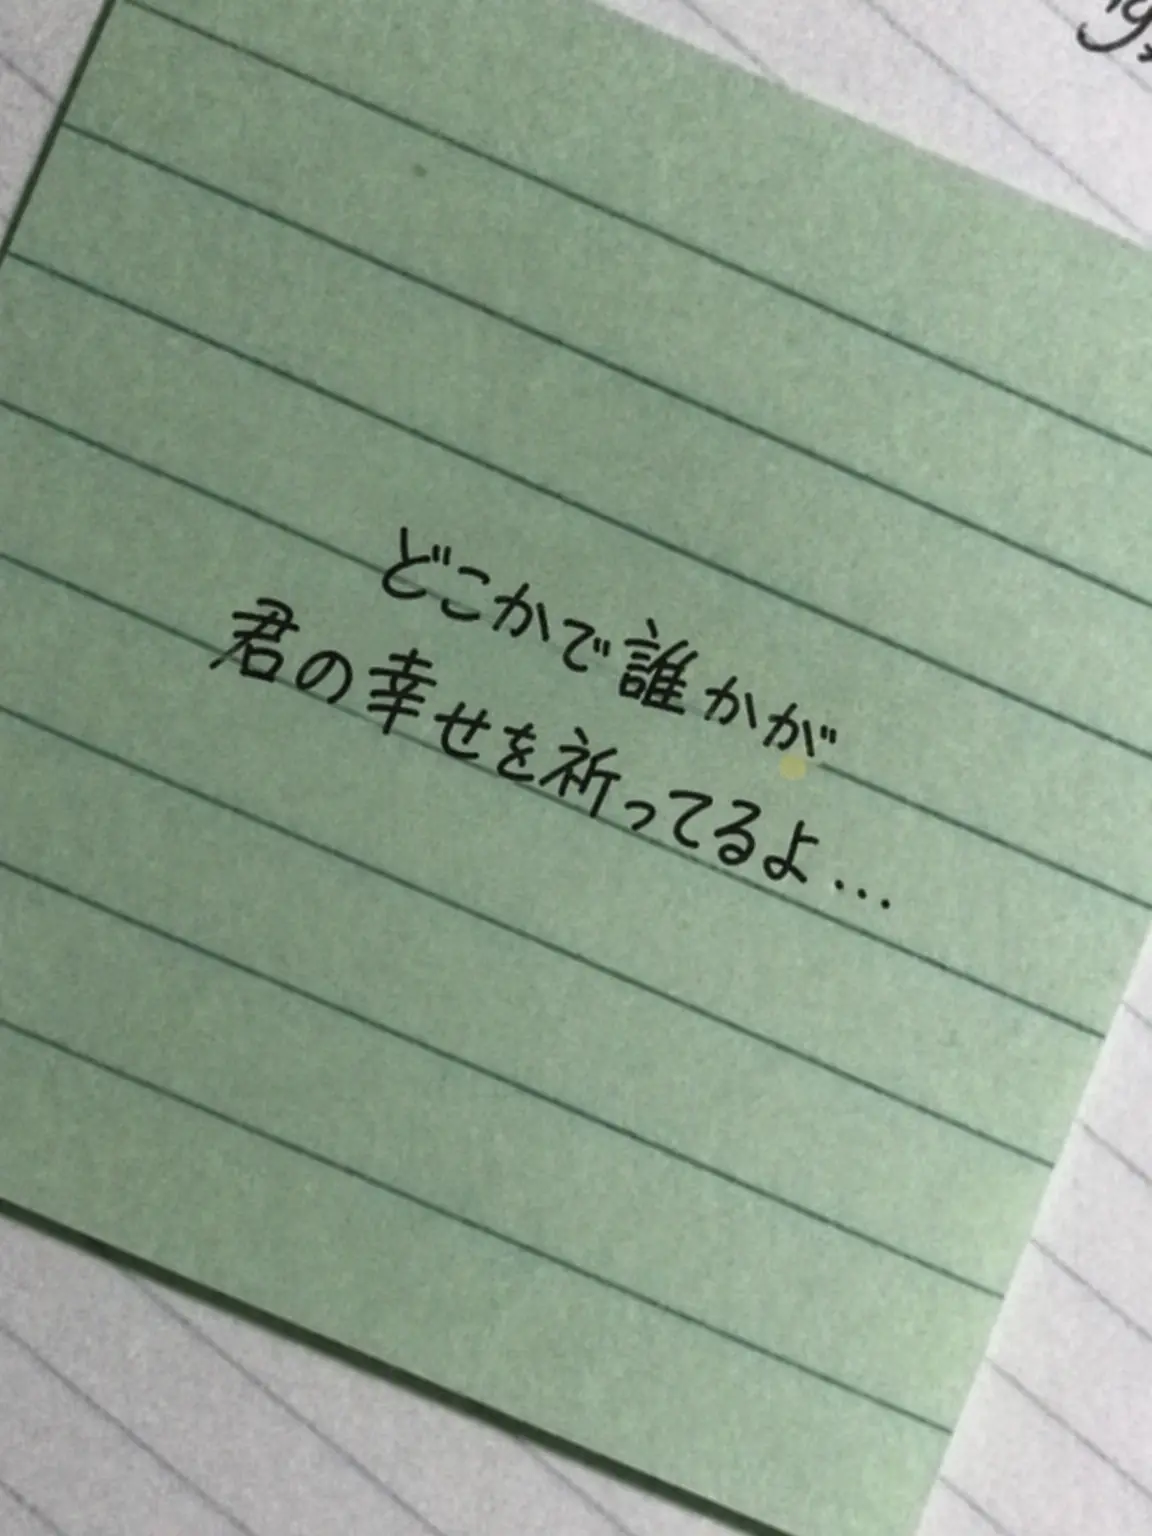 どこかで誰かが
君の幸せを祈ってるよ...